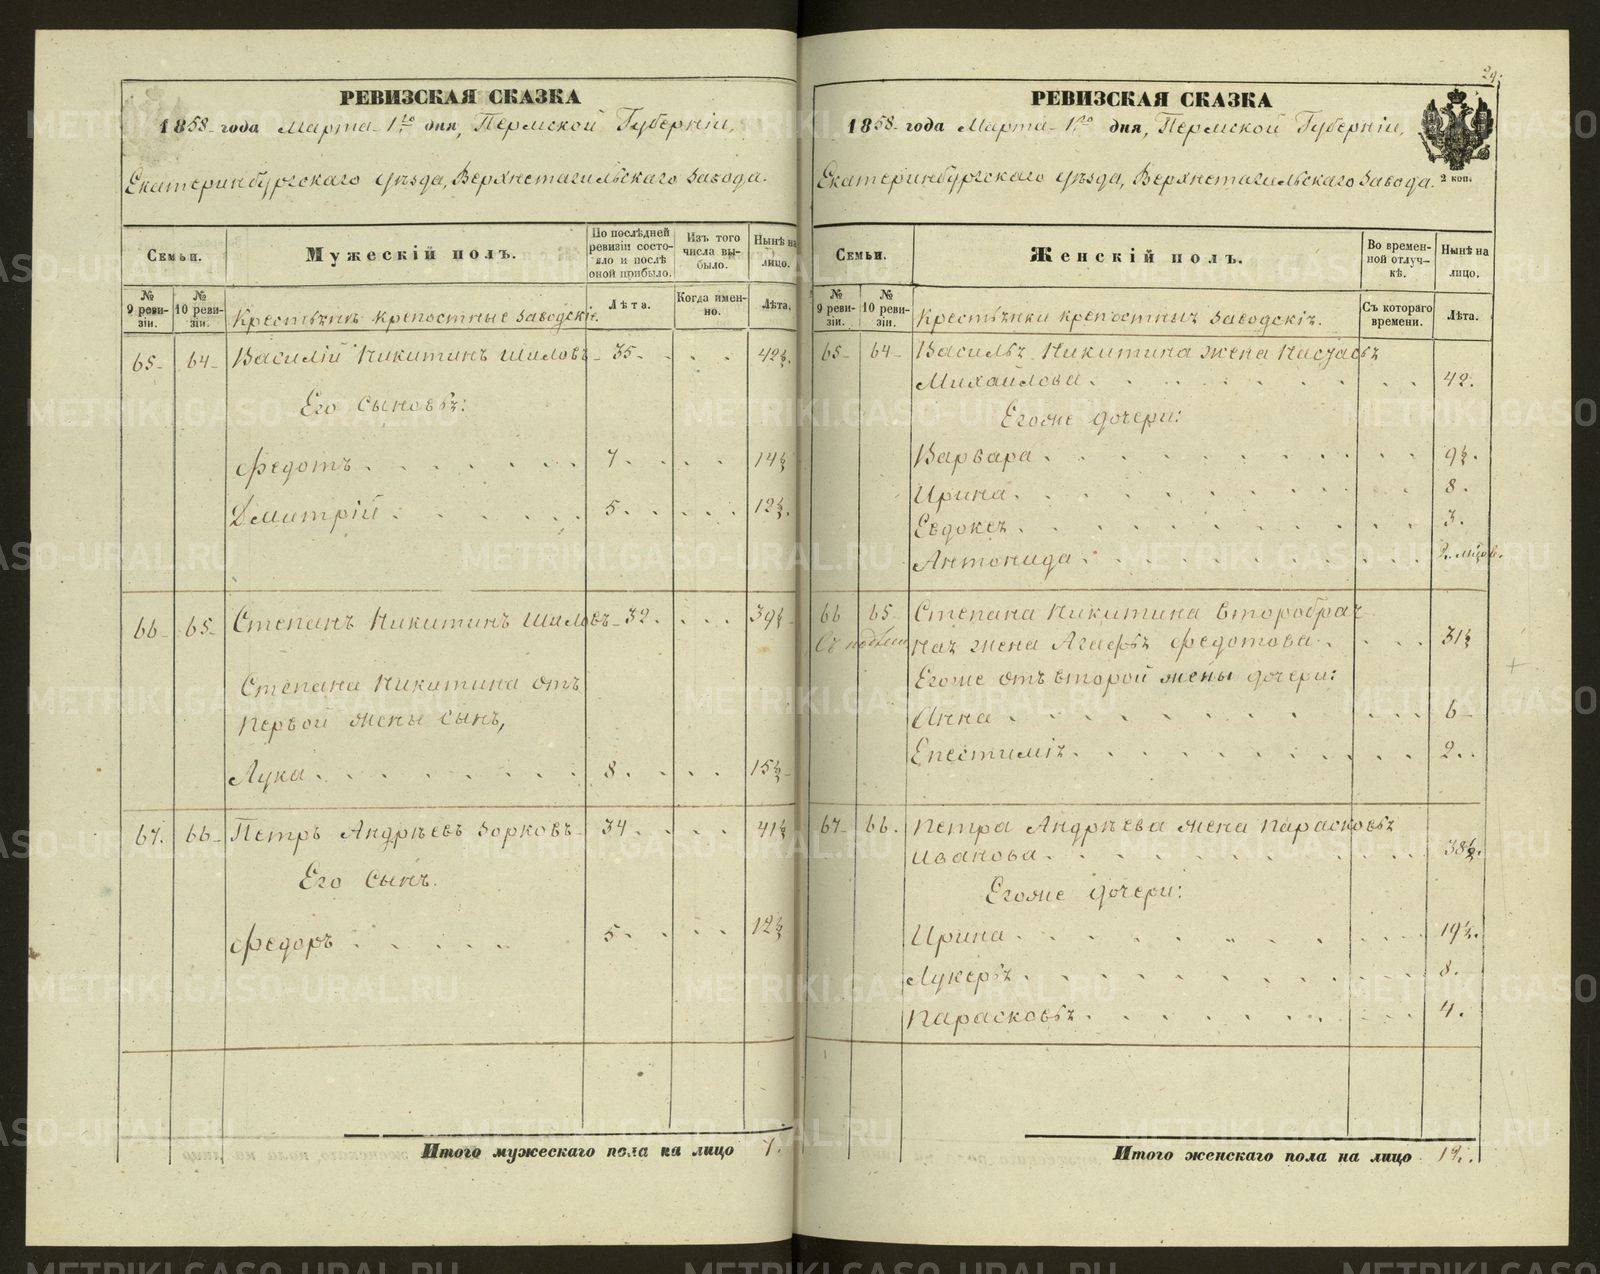 РЕВИЗСКАЯ СКАЗКА
1858 года Марта 1го дня, Пермской Губерніи,
Екатеринбургскаго уѣзда, Верхнетагильскаго Завода.
Семьи.
Мужескій полъ.
По послѣдней ревизіи состояло и послѣ оной прибыло.
Изъ того числа выбыло.
Нынѣ на лицо.
№ 9 ревизіи.
№ 10 ревизіи.
Лѣта.
Когда именно.
Лѣта.
Крестьянъ крепостные Заводскіе.
65 64 Василій Никитинъ Шиловъ 35. 42½.
Его Сыновья:
Федотъ 7. 14½
Дмитрій 5. 12½.
66 65 Степанъ Никитинъ Шиловъ 32. 39½
Степана Никитина отъ
первой жены Сынъ,
Лука 8. 15½
67. 66 Петръ Андрѣевъ Зорковъ 34. 41½
Его Сынъ.
Федоръ 5. 12½
Итого мужескаго пола на лицо 7.
29.
РЕВИЗСКАЯ СКАЗКА
1858 года Марта 1го дня, Пермской Губерніи,
Екатеринбургскаго уѣзда, Верхнетагильскаго Завода.
2 коп.
Семьи.
Женскій полъ.
Во временной отлучкѣ.
Нынѣ на лицо.
№ 9 ревизіи.
№ 10 ревизіи.
Съ котораго времени.
Лѣта.
Крестьянки крепостныя Заводскія.
65 64 Василья Никитина жена Настасья
Михайлова 42.
Егоже дочери:
Варвара 9½.
Ирина 8.
Евдокея 3.
Антонида 2. мѣсяц.
66 65 Степана Никитина второбрач
ная жена Агафья Федотова 31½
Егоже отъ второй жены дочери:
Анна 6
Епестимія 2.
67 66. Петра Андрѣева жена Парасковья
Иванова 38½.
Егоже дочери:
Ирина 19½.
Лукерья 8.
Парасковья 4.
Итого женскаго пола на лицо
METRIKI.GASO-URAL.RU